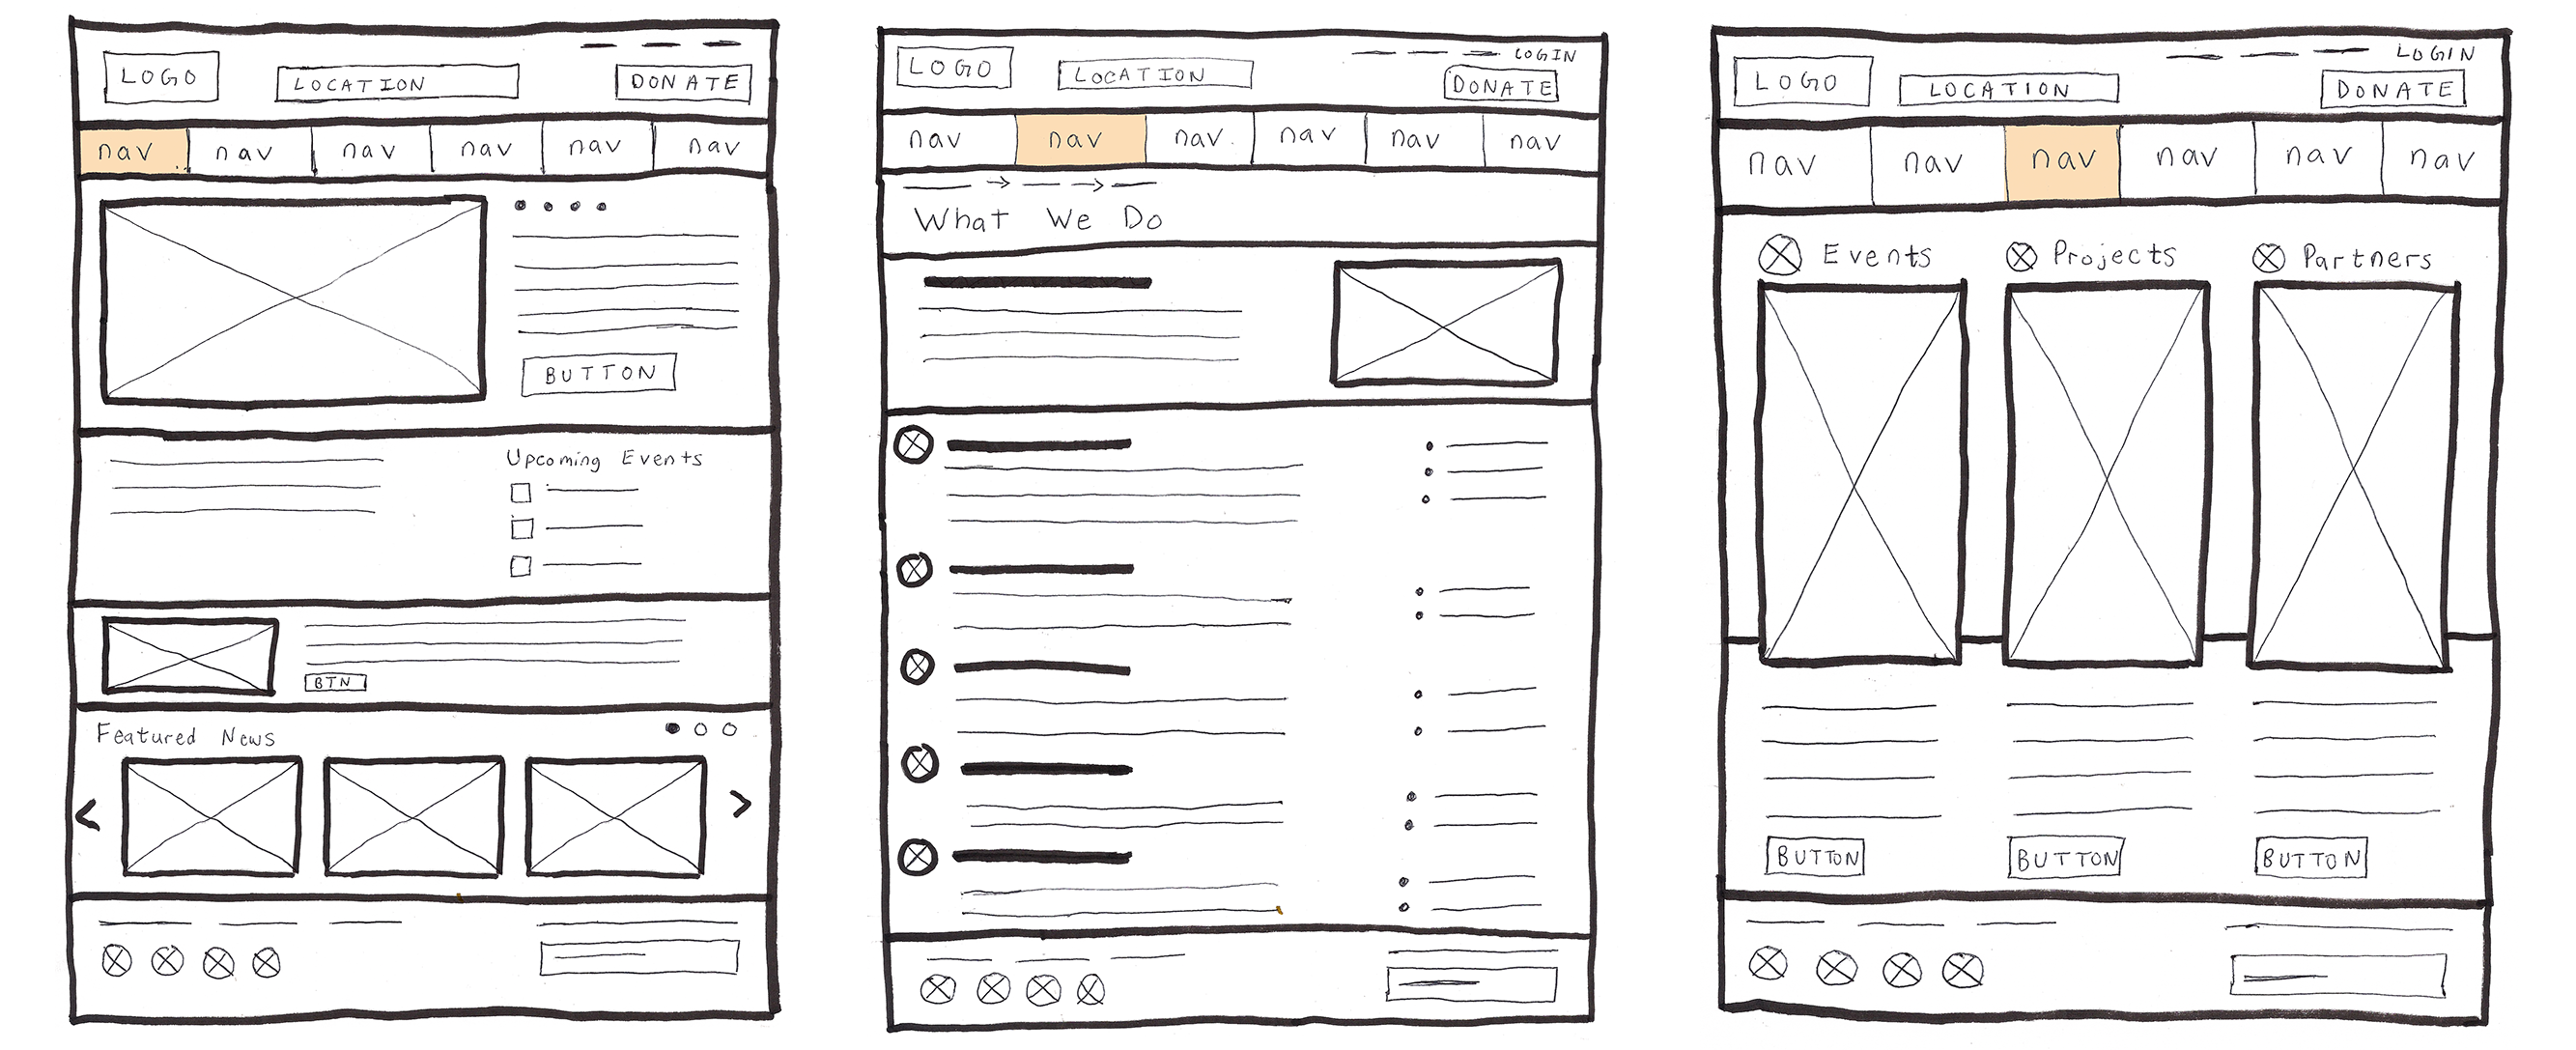 LOGO LOCATION DONATE
nav nav nav nav nav nav
BUTTON
Upcoming Events
BTN
Featured News
LOGIN
LOGO LOCATION DONATE
nav nav nav nav nav nav
What We Do
LOGIN
LOGO LOCATION DONATE
nav nav nav nav nav nav
Events Projects Partners
BUTTON BUTTON BUTTON